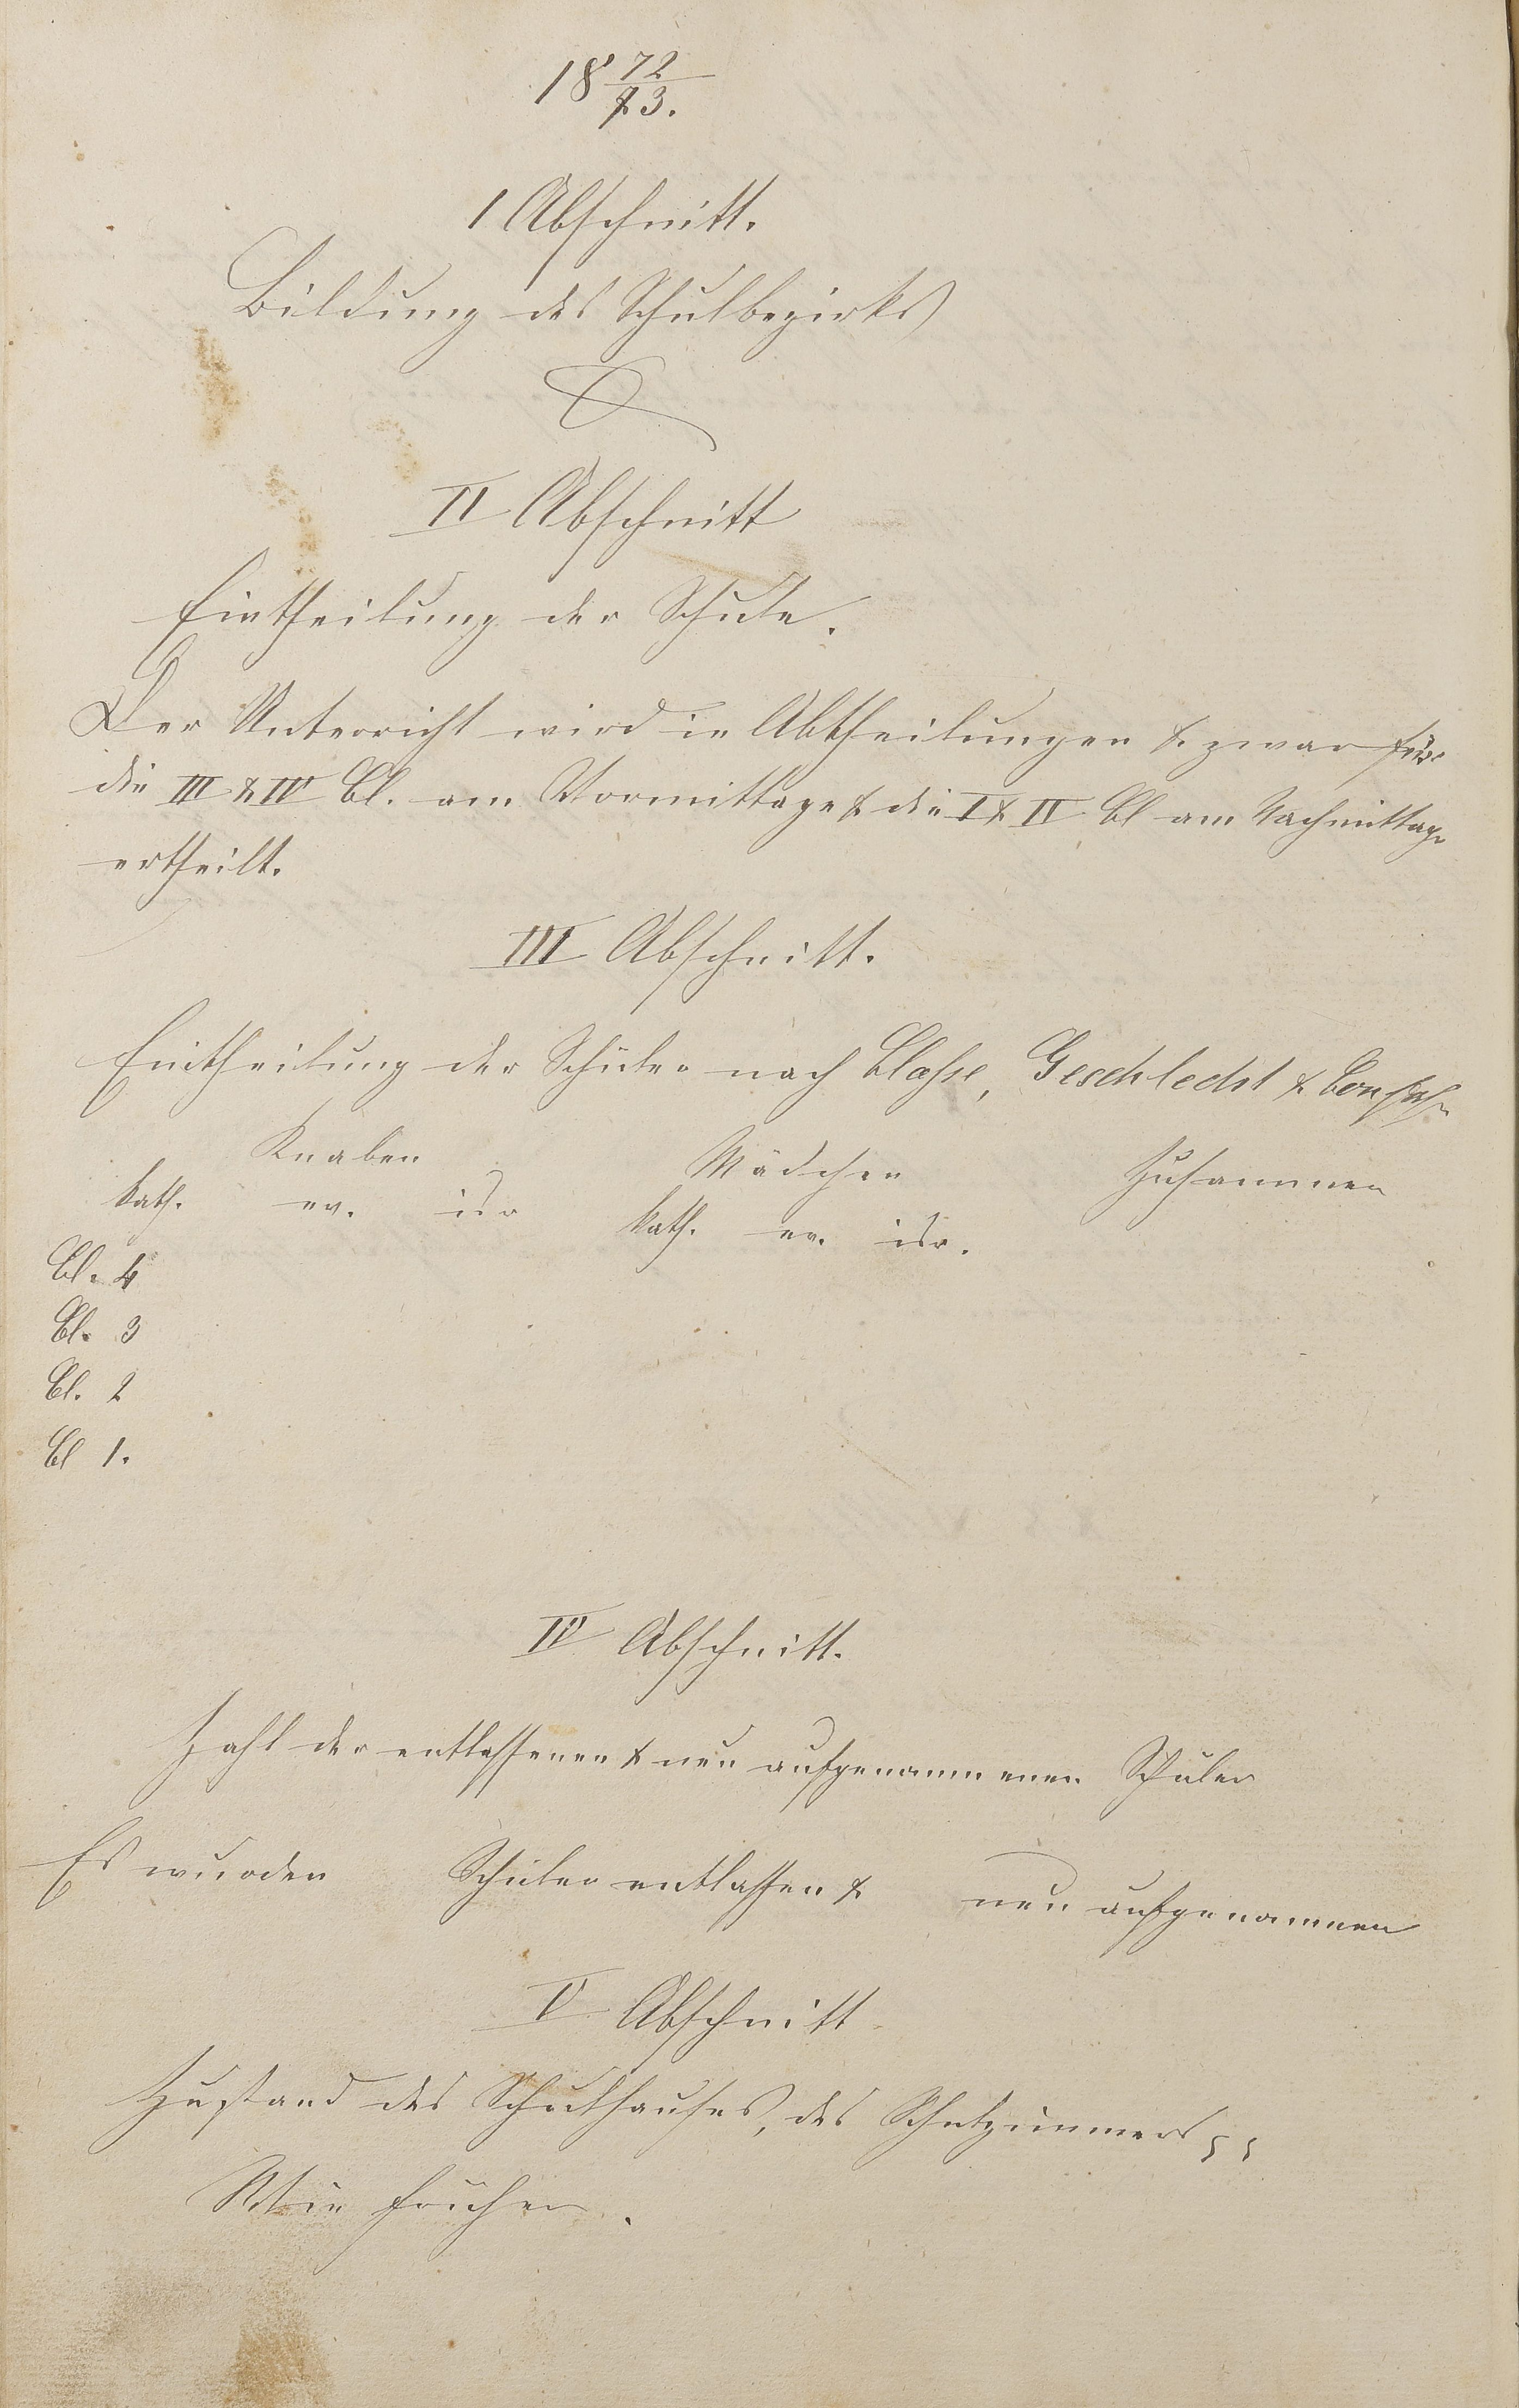 18 72/73.
I Abschnitt.
Bildung des Schulbezirks
II Abschnitt
Eintheilung der Schule.
Der Unterricht wird in Abtheilungen & zwar für
die III & IV Cl. am Vormittage & die I & II Cl am Nachmittage
ertheilt.
III Abschnitt.
Eintheilung der Schüler nach Classe, Geschlecht &
Knaben Mädchen Zusammen
kath. ev. isr kath. ev. isr.
Cl. 4
Cl. 3
Cl. 2
Cl 1.
IV Abschnitt.
Zahl der entlassenen & neu aufgenommenen Schüler
Es wurden Schüler entlassen & neu aufgenommen
V Abschnitt
Zustand des Schulhauses, des Schulzimmers
Wie früher.